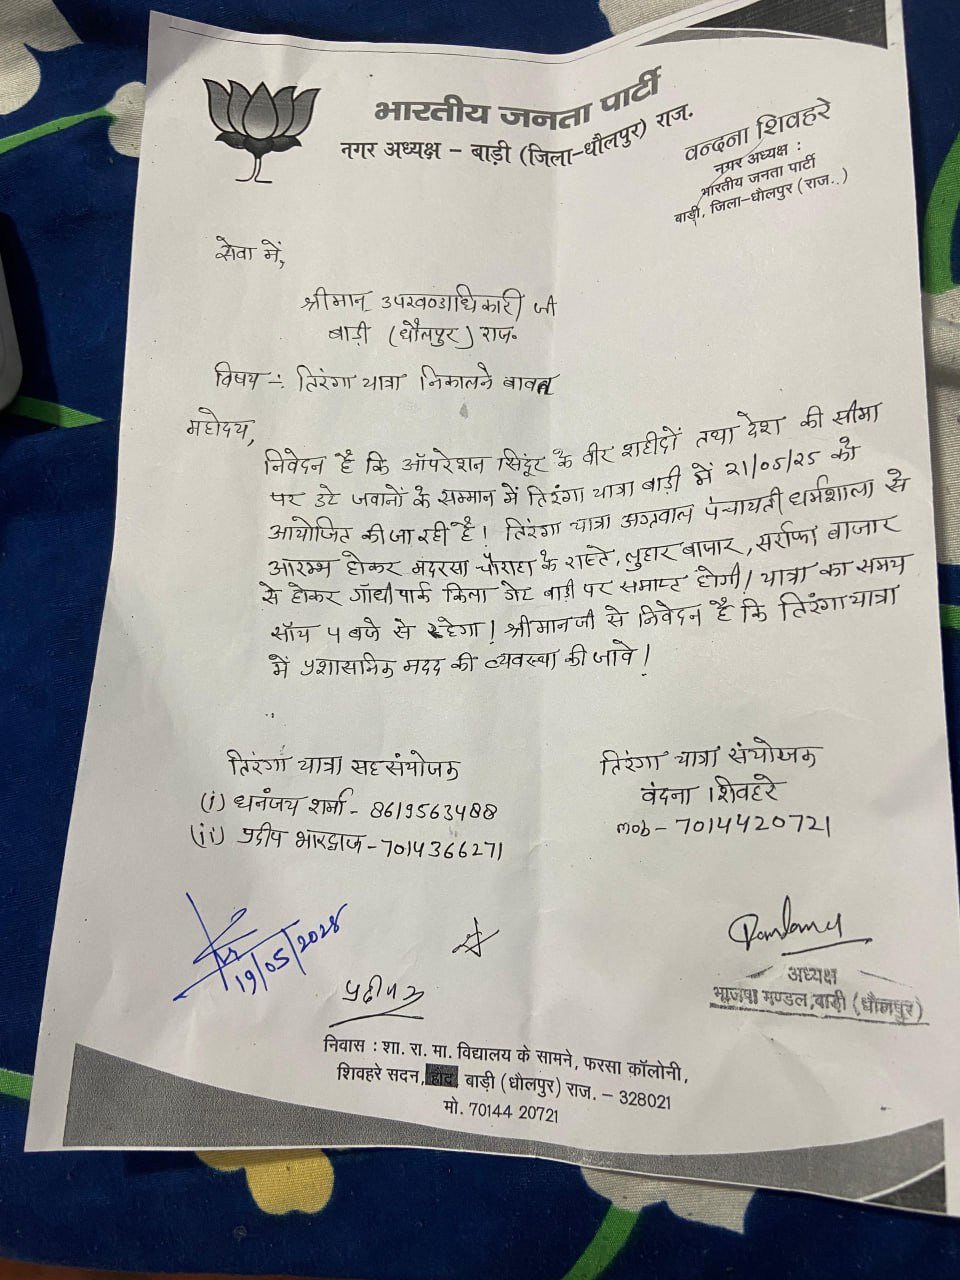 भारतीय जनता पार्टी
नगर अध्यक्ष - बाड़ी (जिला-धौलपुर) राज.
वन्दना शिवहरे
नगर अध्यक्ष :
भारतीय जनता पार्टी
बाड़ी, जिला-धौलपुर (राज..)
सेवा में,
श्रीमान् उपखण्डाधिकारी जी
बाड़ी (धौलपुर) राज.
विषय -: तिरंगा यात्रा निकालने बावत
महोदय,
निवेदन है कि ऑपरेशन सिंदूर के वीर शहीदों तथा देश की सीमा
पर डटे जवानों के सम्मान में तिरंगा यात्रा बाड़ी में 21/05/25 को
आयोजित की जा रही है। तिरंगा यात्रा अग्रवाल पंचायती धर्मशाला से
आरम्भ होकर मदरसा चौराहा के रास्ते, लुहार बाजार, सर्राफा बाजार
से होकर गाँधीपार्क किला गेट बाड़ी पर समाप्त होगी। यात्रा का समय
साँय 4 बजे से रहेगा। श्रीमानजी से निवेदन है कि तिरंगा यात्रा
में प्रशासनिक मदद की व्यवस्था की जावे।
तिरंगा यात्रा सहसंयोजक
(i) धनंजय शर्मा - 8619563488
(ii) प्रदीप भारद्वाज - 7014366271
तिरंगा यात्रा संयोजक
वंदना शिवहरे
mob - 7014420721
19/05/2025
अध्यक्ष
भाजपा मण्डल, बाड़ी (धौलपुर)
निवास : शा. रा. मा. विद्यालय के सामने, फरसा कॉलोनी,
शिवहरे सदन, बाड़ी (धौलपुर) राज. - 328021
मो. 70144 20721